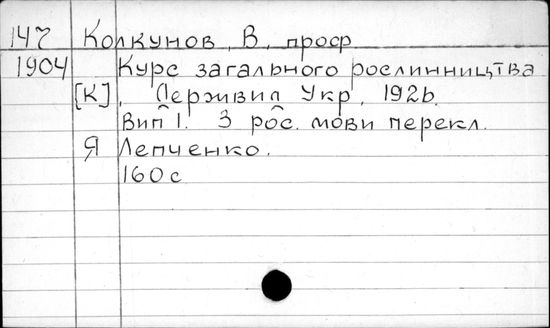 147 Колкунов, В, проф
1904 Курс загального рослинництва
[К], Держвид Укр, 1926.
Вип 1. З рос. мови перекл.
Я Лепченко.
160 с